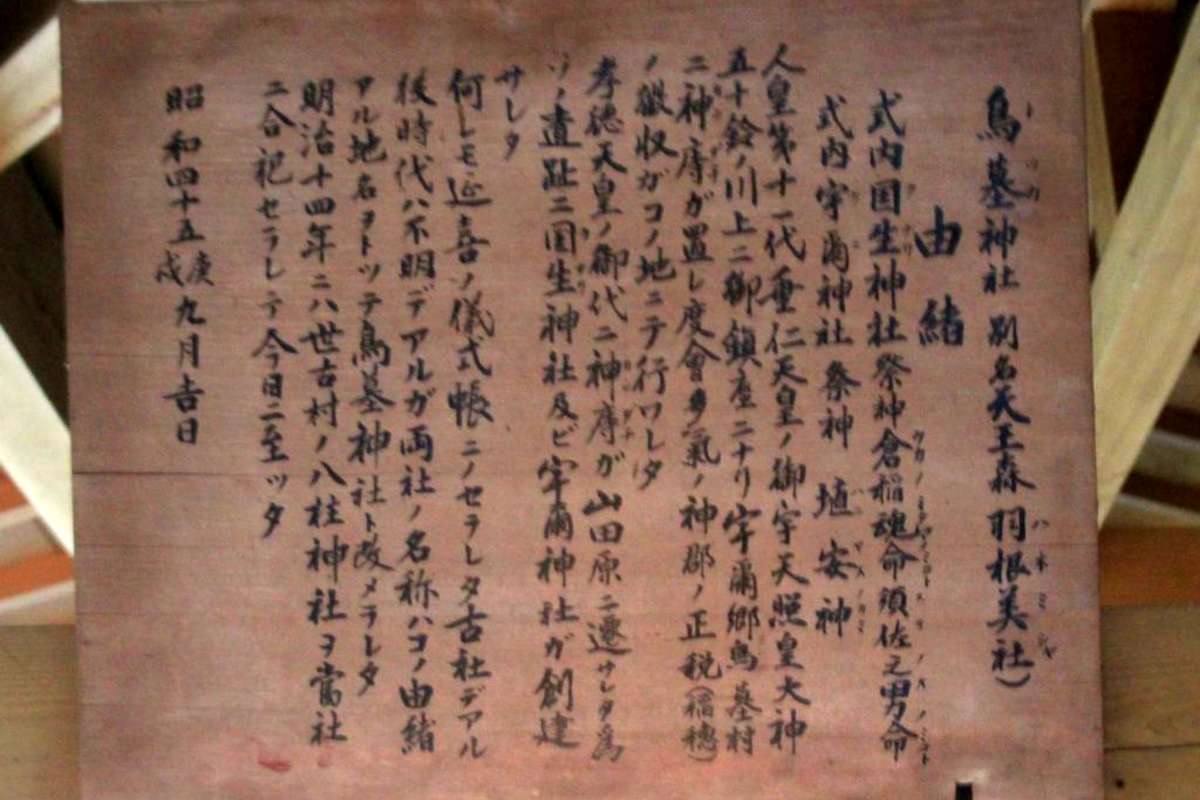 鳥墓神社 別名天王森羽根美社）
由緒
式内国生神社祭神倉稲魂命須佐之男命
式内宇爾神社 祭神 埴安神
人皇第十一代垂仁天皇ノ御宇天照皇大神
五十鈴ノ川上ニ御鎮座ニナリ宇爾郷鳥墓村
ニ神庤ガ置レ度會多氣ノ神郡ノ正税（稲穂）
ノ徴収ガコノ地ニテ行ワレタ
孝徳天皇ノ御代ニ神庤ガ山田原ニ遷サレタ為
ソノ遺趾ニ国生神社及ビ宇爾神社ガ創建
サレタ
何レモ延喜ノ儀式帳ニノセラレタ古社デアル
後時代ハ不明デアルガ両社ノ名称ハコノ由緒
アル地名ヲトツテ鳥墓神社ト改メラレタ
明治十四年ニハ世古村ノ八柱神社ヲ當社
ニ合祀セラレテ今日ニ至ッタ
昭和四十五庚戌九月吉日